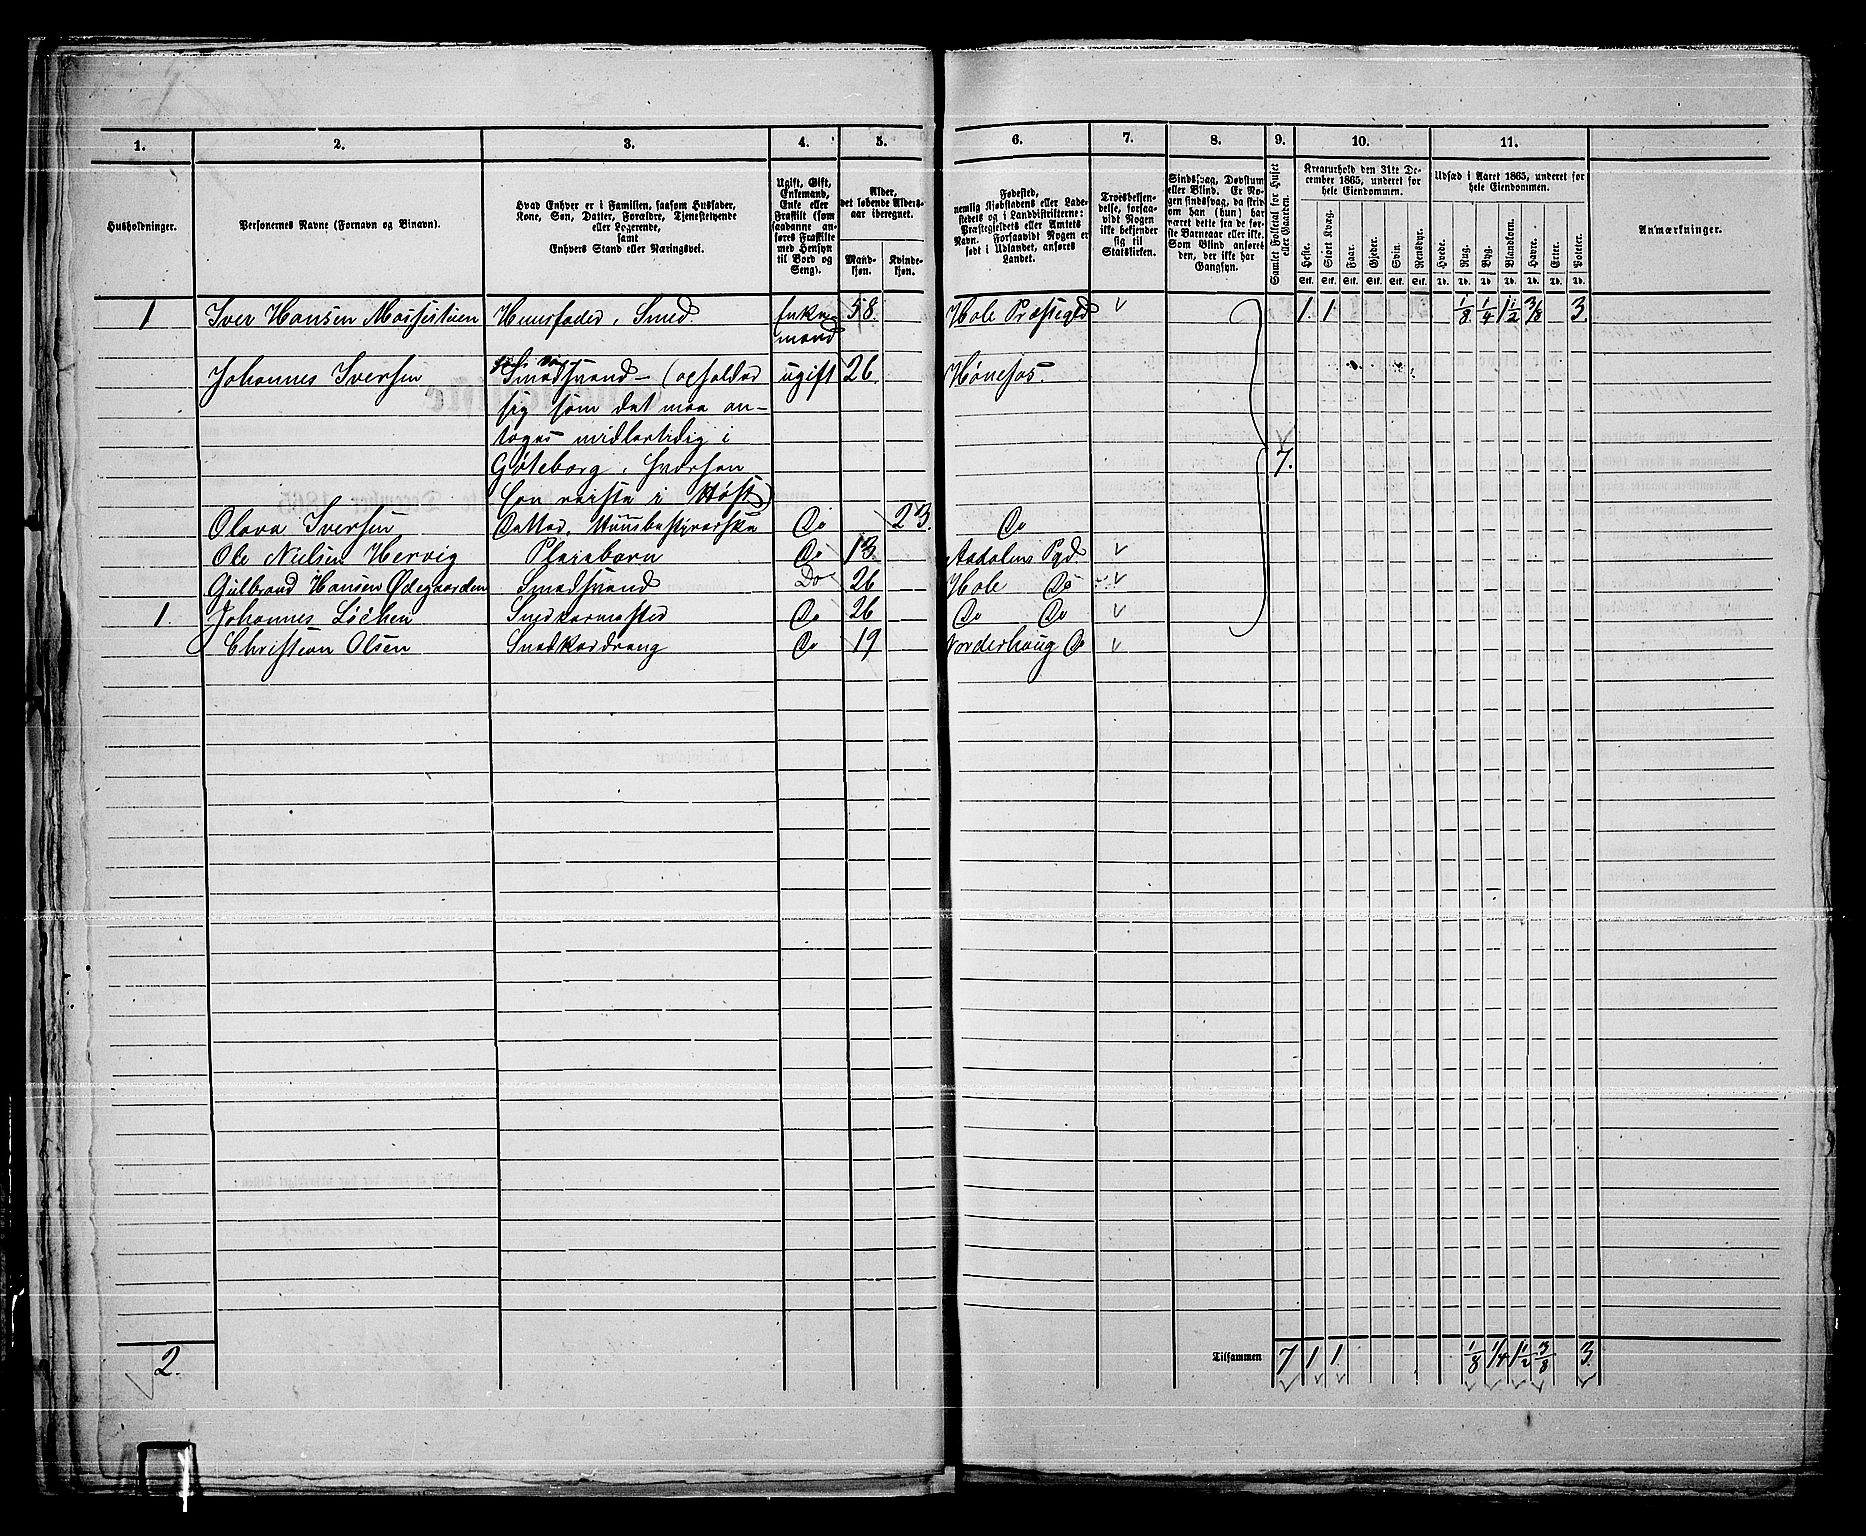 1. 2. 3. 4. 5. 6. 7. 8. 9. 10. 11.
Husholdninger.
Personernes Navne (Fornavn og Binavn).
Hvad Enhver er i Familien, saasom Husfader,
Kone, Søn, Datter, Forældre, Tjenestetyende
eller Logerende,
samt
Enhvers Stand eller Næringsvei.
Ugift, Gift,
Enkemand,
Enke eller
Fraskilt (som
saadanne an-
føres Fraskilte
med Hensyn
til Bord og
Seng).
Alder,
det løbende Alders-
aar iberegnet.
Mand-
kjøn.
Kvinde-
kjøn.
Fødested,
nemlig Kjøbstadens eller Lade-
stedets og i Landdistrikterne:
Præstegjeldets eller Amtets
Navn. Forsaavidt Nogen er
født i Udlandet, anføres
Landet.
Troesbekjen-
delse, forsaa-
vidt Nogen
ikke bekjender
sig til
Statskirken.
Sindssvag, Døvstum
eller Blind. Er No-
gen sindssvag, da skriv
om han (hun) har
været dette fra de før-
ste Barneaar eller ikke.
Som Blind anføres
den, der ikke har
Gangsyn.
Samlet Folketal for Huset
eller Gaarden.
Kreaturhold den 31te De-
cember 1865, underet for
hele Eiendommen.
Heste. Stort Kvæg. Faar. Gjeder. Svin. Rensdyr.
Stk. Stk. Stk. Stk. Stk. Stk.
Udsæd i Aaret 1865, underet for
hele Eiendommen.
Hvede. Rug. Byg. Blandkorn. Havre. Erter. Poteter.
Td. Td. Td. Td. Td. Td. Td.
Anmærkninger.
1 Iver Hansen Husfader, Smed. Enke- 58 Hole Præstegld 1. 1 1/8 1/4 1 1/2 3/8 3.
mand
Johannes Iversen Smedsvend (opholder ugift 26 Hønefos.
sig som det maa an-
tages midlertidig i
Göteborg, hvorhen 7.
han reiste i Høst)
Olava Iversen Datter, Huusbestyrerske Do 23. Do
Ole Nielsen Hervig Pleiebarn Do 13 Aadalens Pgd.
Gulbrand Hansen Ødegaarden Smedsvend Do 26 Hole Do
1. Johannes Løchen Snedkermester Do 26 Do Do
Christian Olsen Snedkerdreng Do 19 Norderhaug Do
2. Tilsammen 7 1 1. 1/8 1/4 1 1/2 3/8 3.